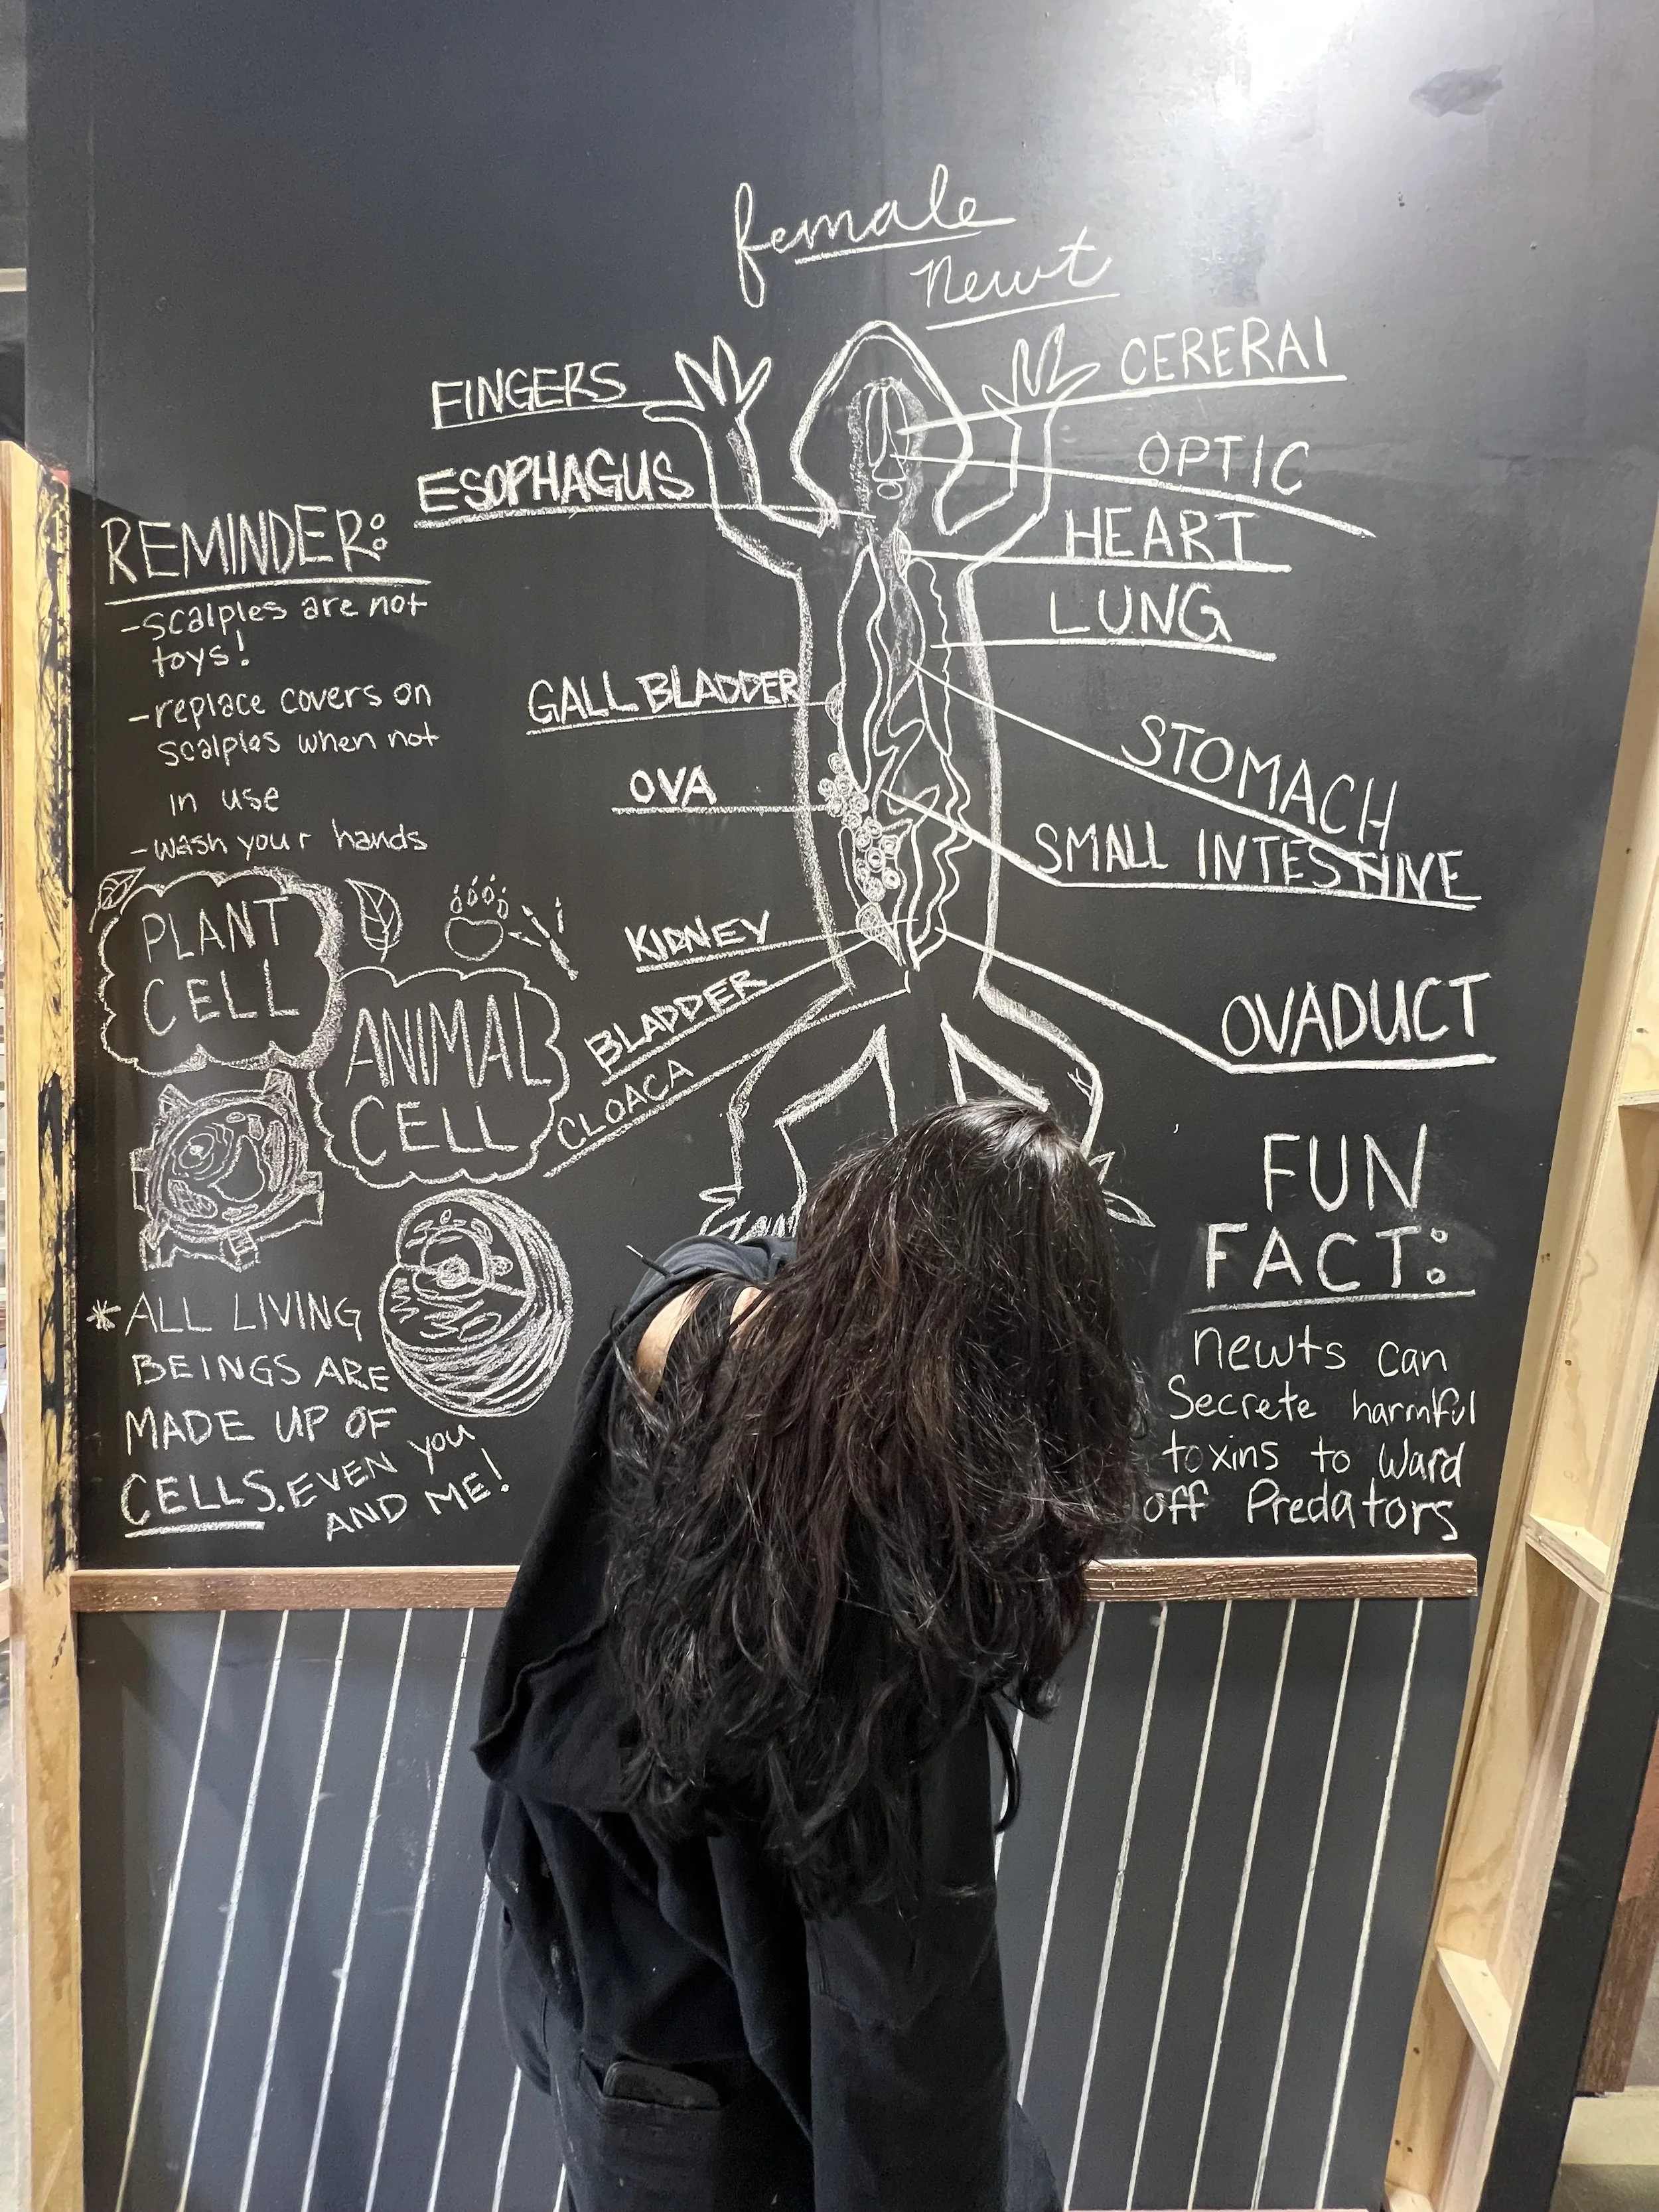 female
newt
FINGERS
ESOPHAGUS
GALL BLADDER
OVA
KIDNEY
BLADDER
CLOACA
CERERAl
OPTIC
HEART
LUNG
STOMACH
SMALL INTESTINE
OVADUCT
REMINDER:
-scalples are not
toys!
-replace covers on
scalples when not
in use
-wash your hands
PLANT
CELL
ANIMAL
CELL
*ALL LIVING
BEINGS ARE
MADE UP OF
CELLS. EVEN you
AND ME!
FUN
FACT:
newts can
Secrete harmful
toxins to Ward
off Predators